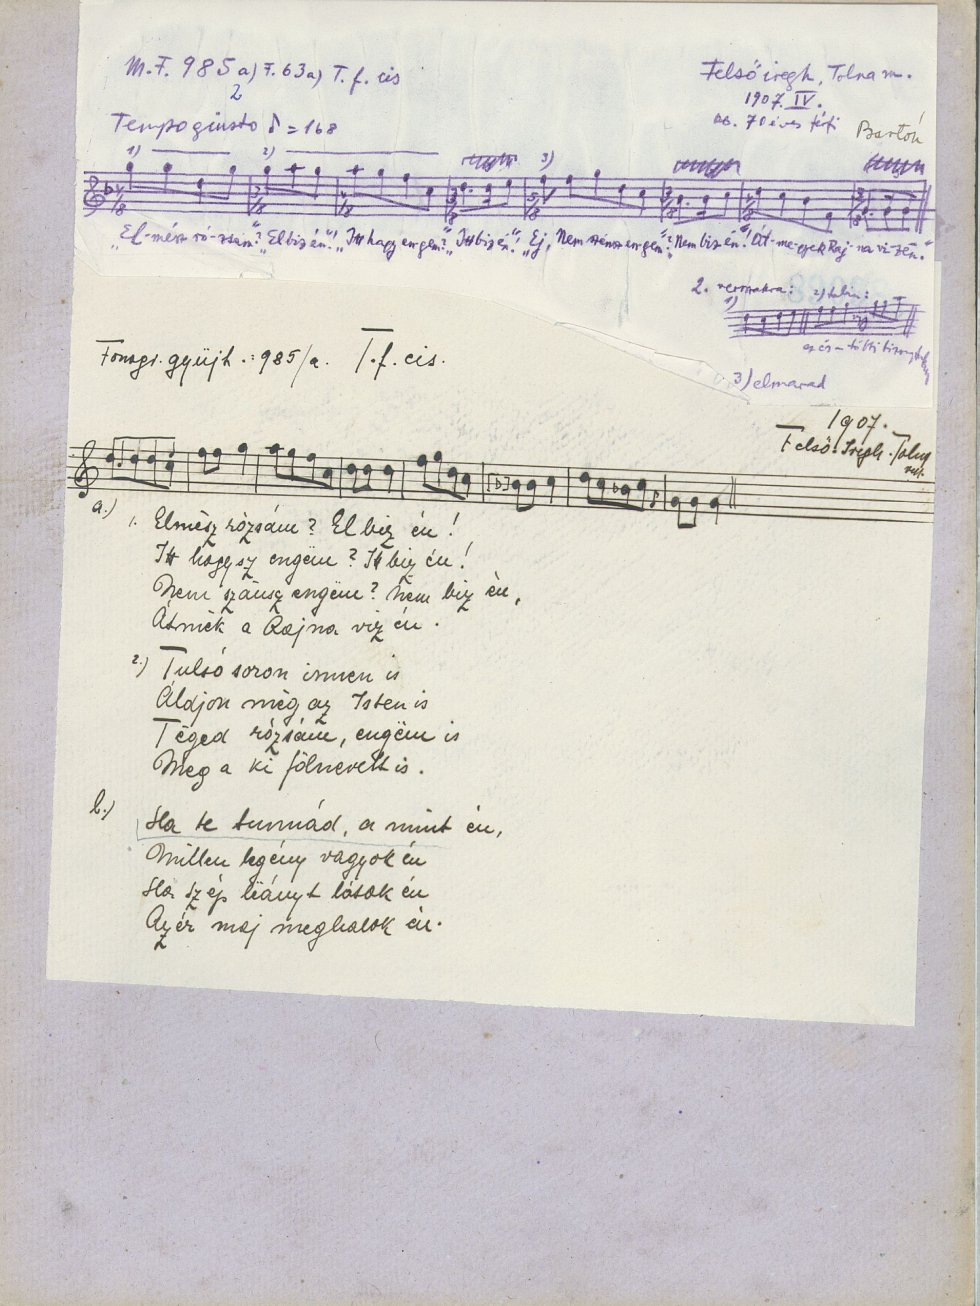 M.F. 985 a) F. 63a) T. f. cis
2
Felsőiregh, Tolna m.
1907. IV.
kb. 70 éves férfi
Bartók
Tempo giusto ♪ = 168
1) 2) 3)
"El-mész ró-zsám?" "El biz én!" "Itt hagy engem?" "Itt biz én!" "Ej, Nem szánsz engem?" "Nem biz én! Át-me-gyek Raj-na vi-zén."
2. versszakra:
1) 2) talán:
3) elmarad
Fonogr. gyűjt.: 985/a. T. f. cis.
1907.
Felső-Iregh. Tolna
a.) 1. Elmész rózsám? El biz én!
Itt hagysz engëm? Itt biz én!
Nem szánsz engëm? Nem biz én,
Átmék a Rajna viz én.
2.) Tulsó soron innen is
Áldjon még az Isten is
Téged rózsám, engëm is
Meg a ki fölnevelt is.
b.) Ha te tunnád, a mint én,
Millen legény vagyok én
Ha szép leányt látok én
Azér maj meghalok én.